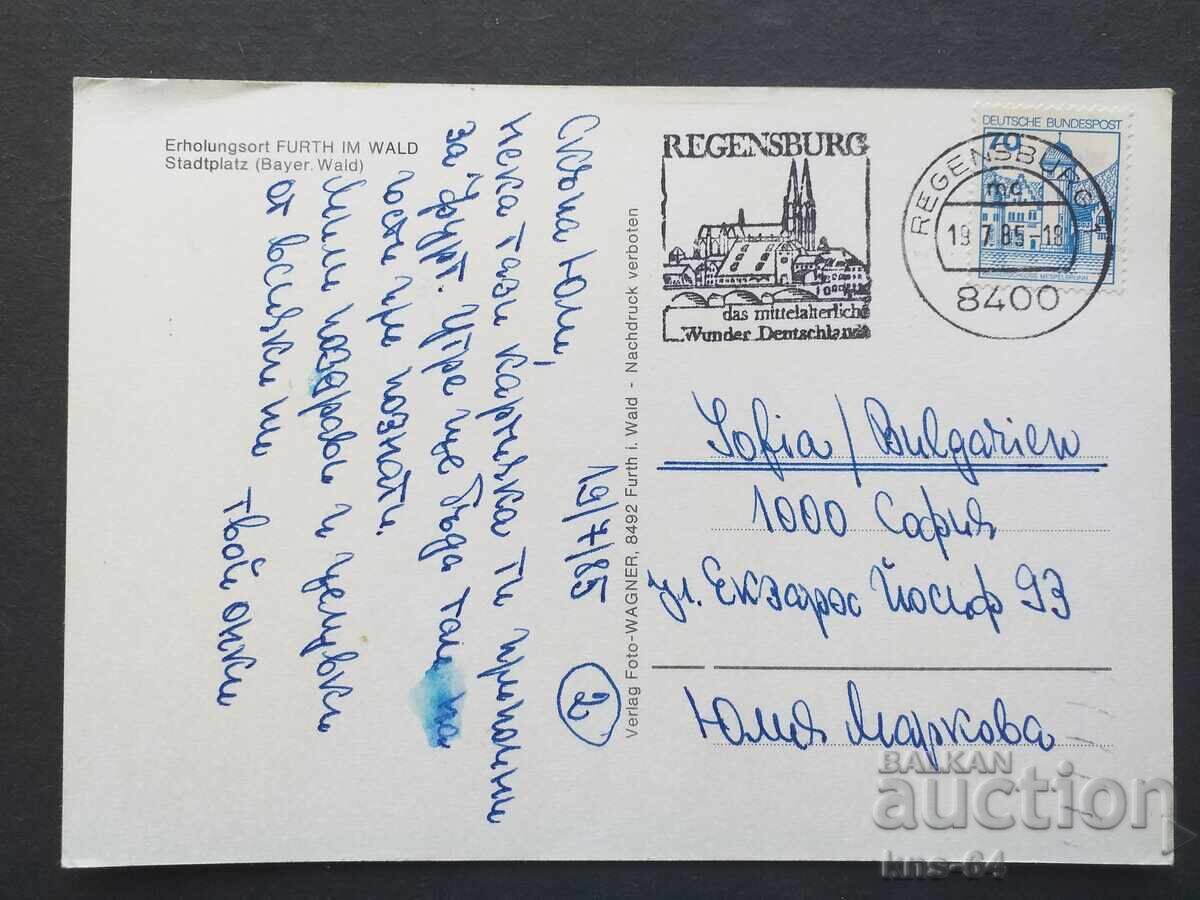 Erholungsort FURTH IM WALD
Stadtplatz (Bayer. Wald)
Скъпа Юли,
19/7/85
2
нека тази картичка ти припомни
за Фурт. Утре ще бъда там на
гости при познати.
Мили поздрави и целувки
от всички ни
твой
Verlag Foto-WAGNER, 8492 Furth i. Wald - Nachdruck verboten
REGENSBURG
das mittelalterliche
Wunder Deutschlands
DEUTSCHE BUNDESPOST
70
MESPELBRUNN
REGENSBURG 1
mc
19.7.85-18
8400
Sofia / Bulgarien
1000 София
ул. Екзарх Йосиф 93
Юлия Маркова
BALKAN
auction
kns-64